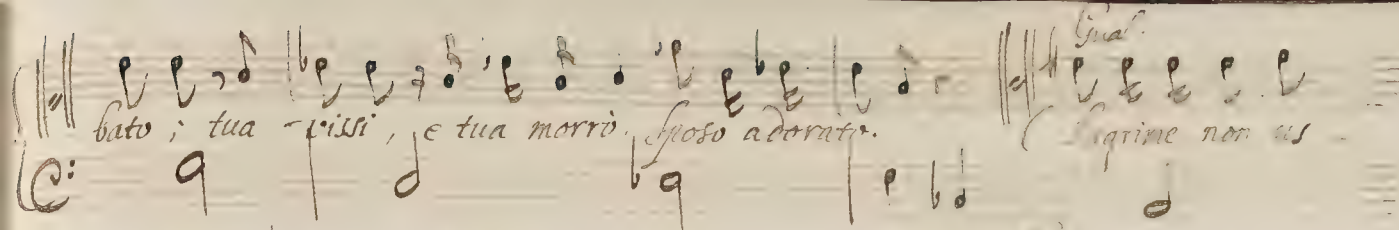 Gual.
bato; tua vissi, e tua morrò. Sposo adorato. (Lagrime non us